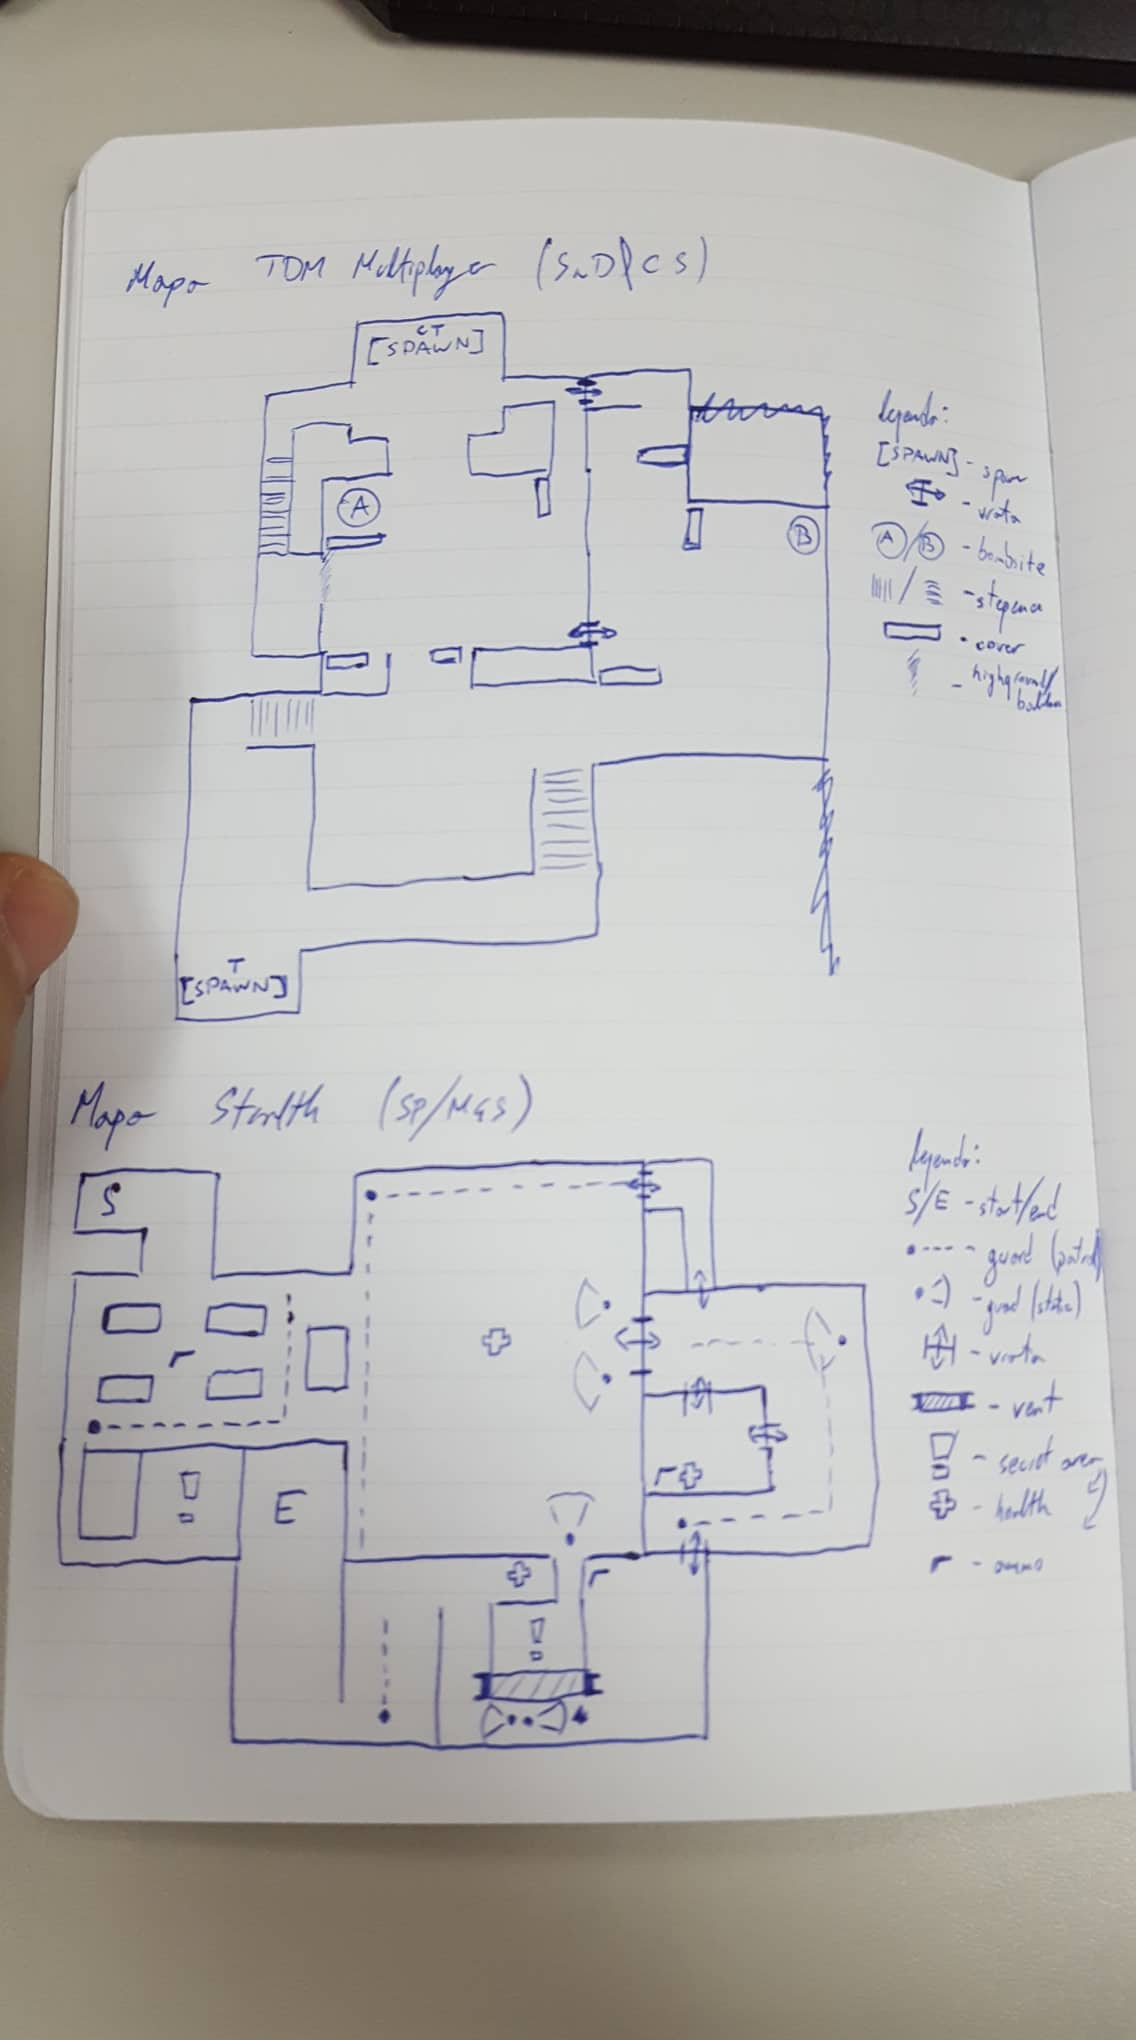 Mapa TDM Multiplayer (SnD/CS)
CT
[SPAWN]
A
B
T
[SPAWN]
legenda:
[SPAWN] - spawn
- vrata
A/B - bombsite
/ - stepenice
- cover
- highground/
Mapa Stealth (SP/MGS)
S
E
legenda:
S/E - start/end
- guard (patrol)
- guard (static)
- vrata
- vent
- secret area
- health
- ammo